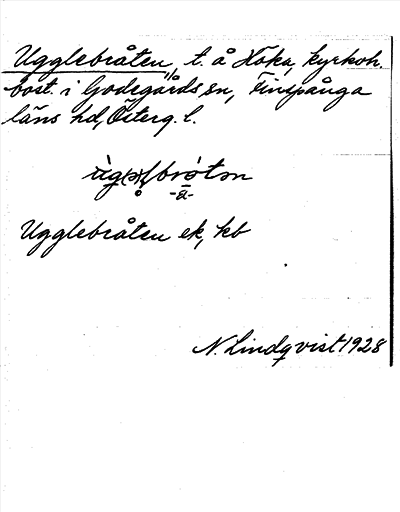 Ugglebråten, t. å Höka, kyrkoh.
bost. i Godegårds sn, Finspånga
läns hd, Österg. l.
Ugglebråten ek, kb
N. Lindqvist 1928